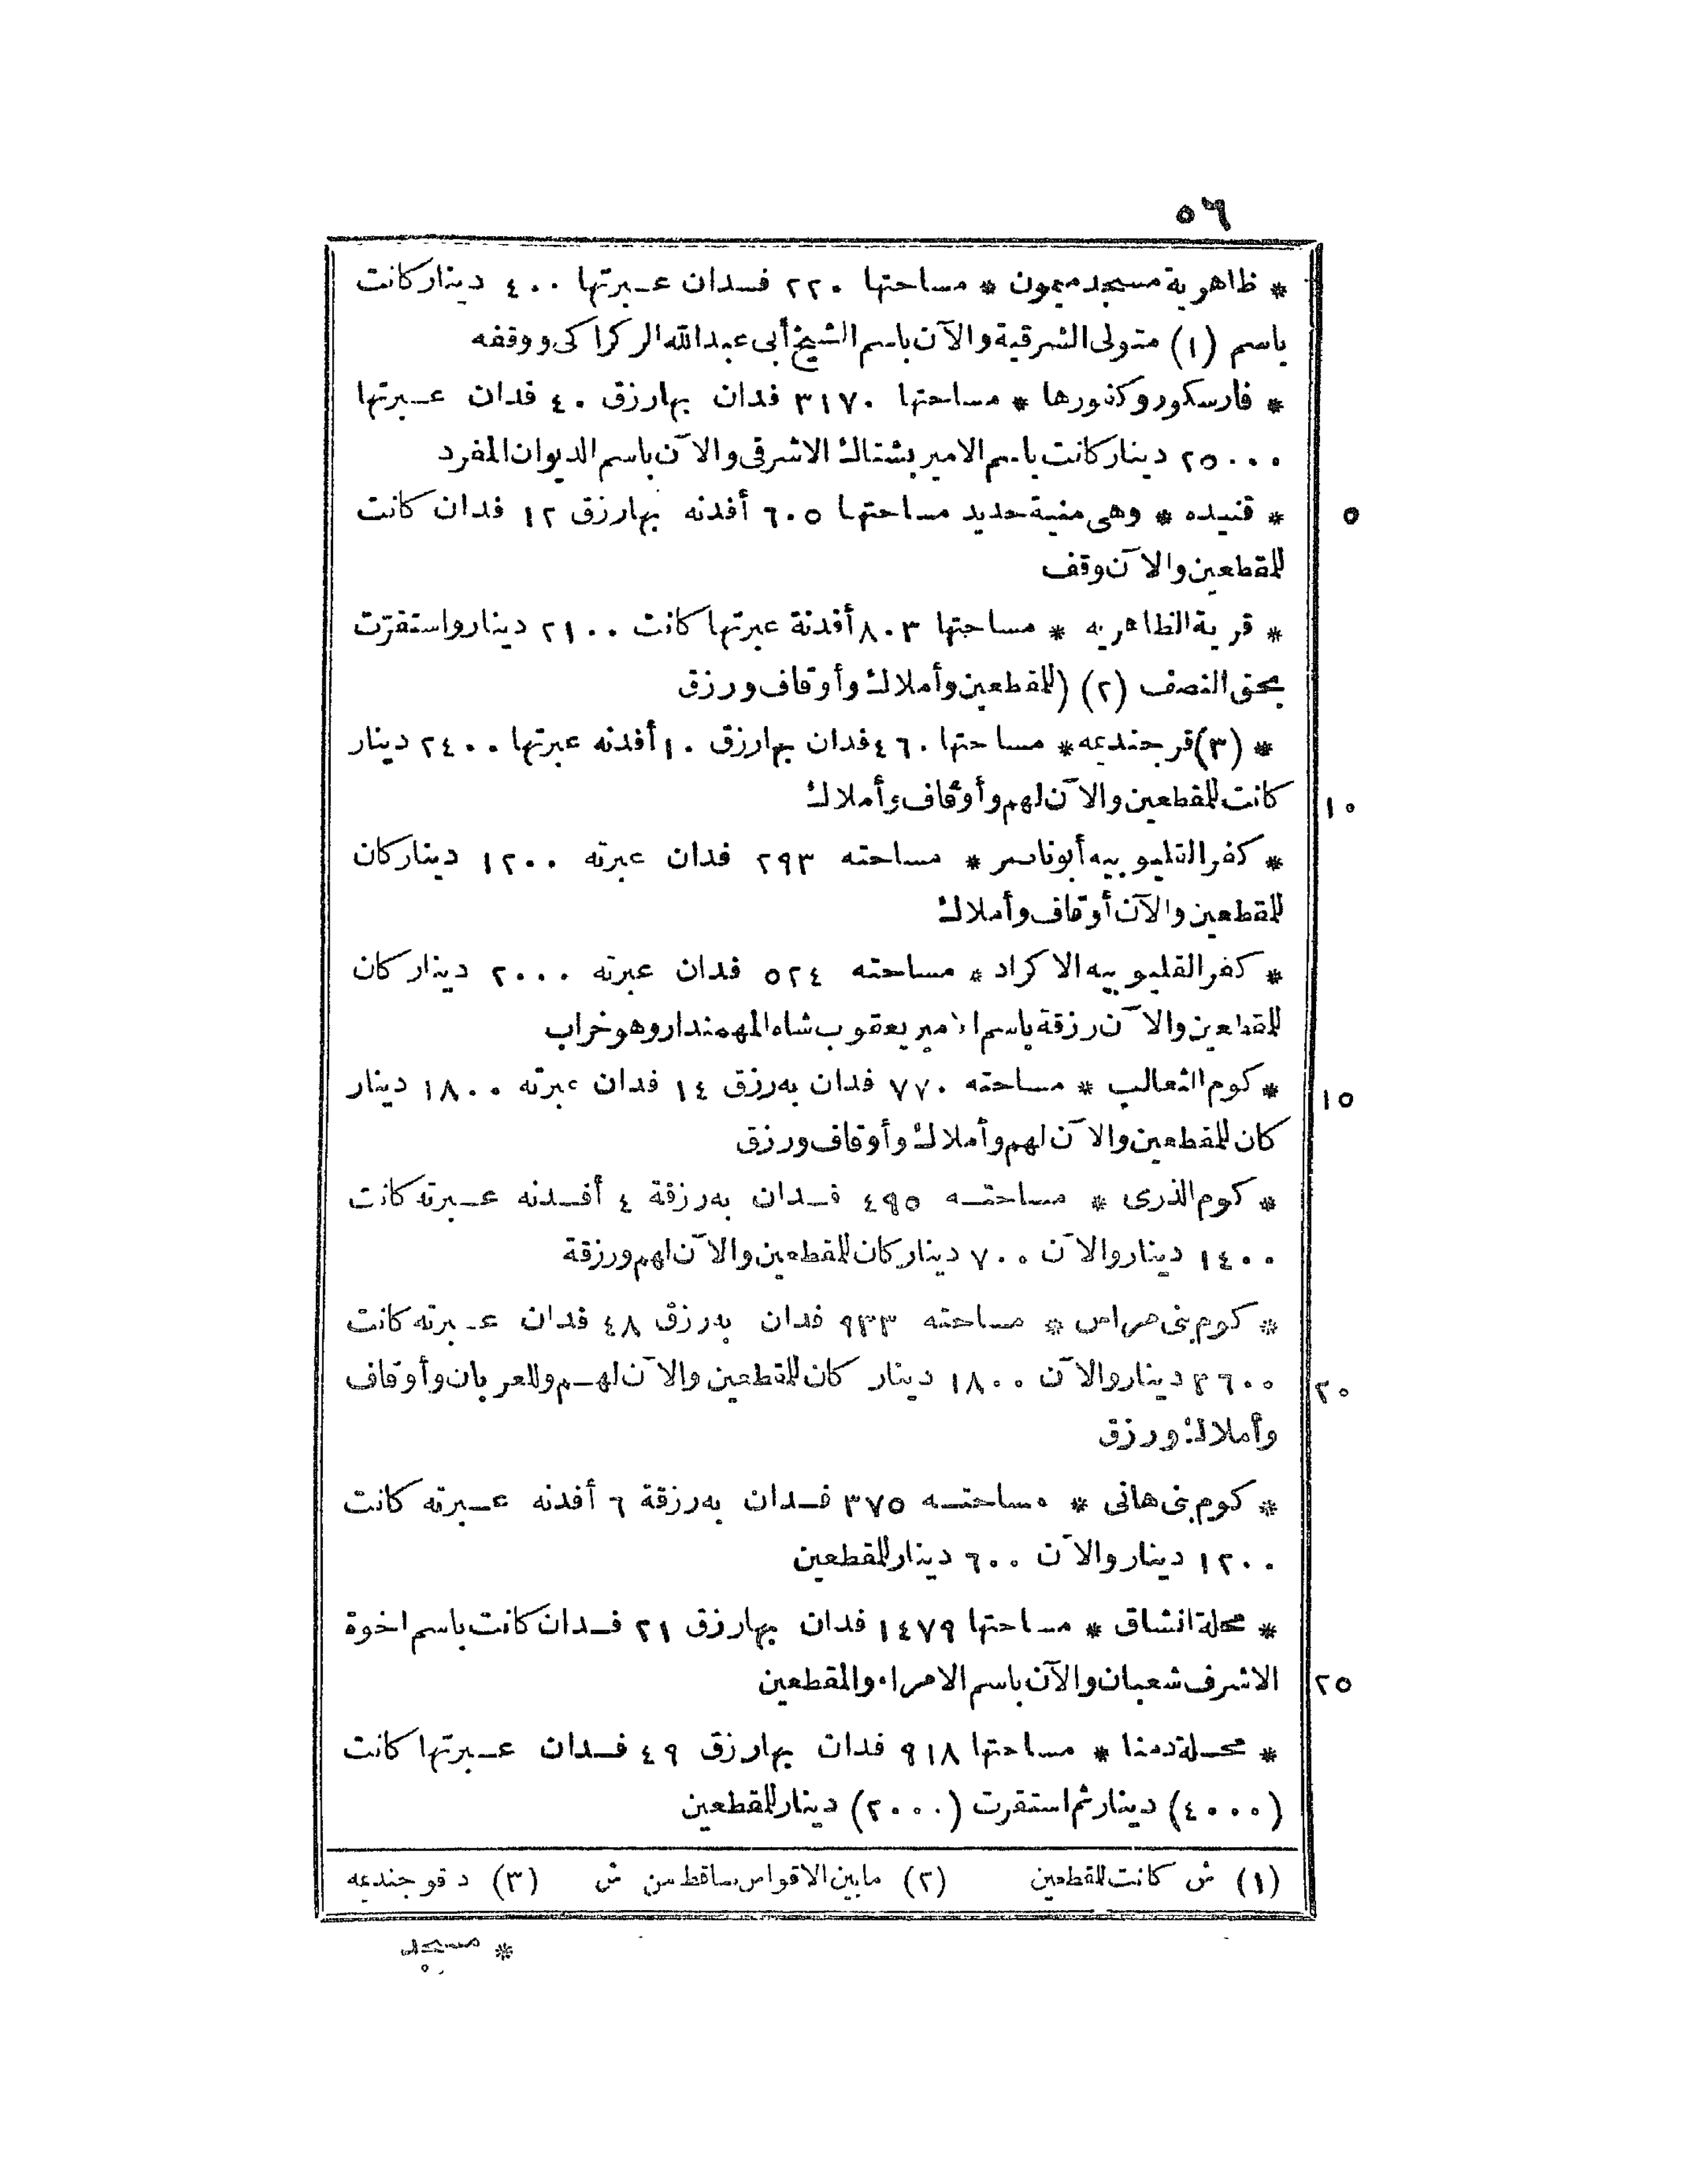 ٥٦
* ظاهرية مسجد ميمون * مساحتها ٢٢٠ فدان عبرتها ٤٠٠ دينار كانت
باسم (١) متولى الشرقية والآن باسم الشيخ أبى عبد الله الركراكى ووقفه
* فارسكور وكفورها * مساحتها ٣١٧٠ فدان بها رزق ٤٠ فدان عبرتها
٢٥٠٠٠ دينار كانت باسم الامير بشتاك الاشرفى والآن باسم الديوان المفرد
٥ * قنيده * وهى منية حديد مساحتها ٦٠٥ أفدنه بها رزق ١٢ فدان كانت
للمقطعين والآن وقف
* قرية الظاهريه * مساحتها ٨٠٣ أفدنة عبرتها كانت ٢١٠٠ دينار واستقرّت
بحق النصف (٢) (للمقطعين وأملاك وأوقاف ورزق
* (٣) قرجنديمه * مساحتها ٤٦٠ فدان بها رزق ١٠ أفدنه عبرتها ٢٤٠٠ دينار
١٠ كانت للمقطعين والآن لهم وأوقاف وأملاك
* كفر القليوبيه أبو ناصر * مساحته ٢٩٣ فدان عبرته ١٢٠٠ دينار كان
للمقطعين والآن أوقاف وأملاك
* كفر القليوبيه الاكراد * مساحته ٥٢٤ فدان عبرته ٢٠٠٠ دينار كان
للمقطعين والآن رزقة باسم الامير يعقوب شاه المهمندار وهو خراب
١٥ * كوم الثعالب * مساحته ٧٧٠ فدان به رزق ١٤ فدان عبرته ١٨٠٠ دينار
كان للمقطعين والآن لهم وأملاك وأوقاف ورزق
* كوم الذرى * مساحته ٤٩٥ فدان به رزقة ٤ أفدنه عبرته كانت
١٤٠٠ دينار والآن ٧٠٠ دينار كان للمقطعين والآن لهم ورزقة
* كوم بنى مراس * مساحته ٩٣٣ فدان به رزق ٤٨ فدان عبرته كانت
٢٠ ٣٦٠٠ دينار والآن ١٨٠٠ دينار كان للمقطعين والآن لهم وللعربان وأوقاف
وأملاك ورزق
* كوم بنى هانى * مساحته ٣٧٥ فدان به رزقة ٦ أفدنه عبرته كانت
١٢٠٠ دينار والآن ٦٠٠ دينار للمقطعين
* محلة انشاق * مساحتها ١٤٧٩ فدان بها رزق ٢١ فدان كانت باسم اخوة
٢٥ الاشرف شعبان والآن باسم الامراء والمقطعين
* محلة دمنا * مساحتها ٩١٨ فدان بها رزق ٤٩ فدان عبرتها كانت
(٤٠٠٠) دينار ثم استقرت (٢٠٠٠) دينار للمقطعين
(١) ش كانت للمقطعين (٢) ما بين الاقواس ساقط من ش (٣) د قوجنديمه
* مسجد